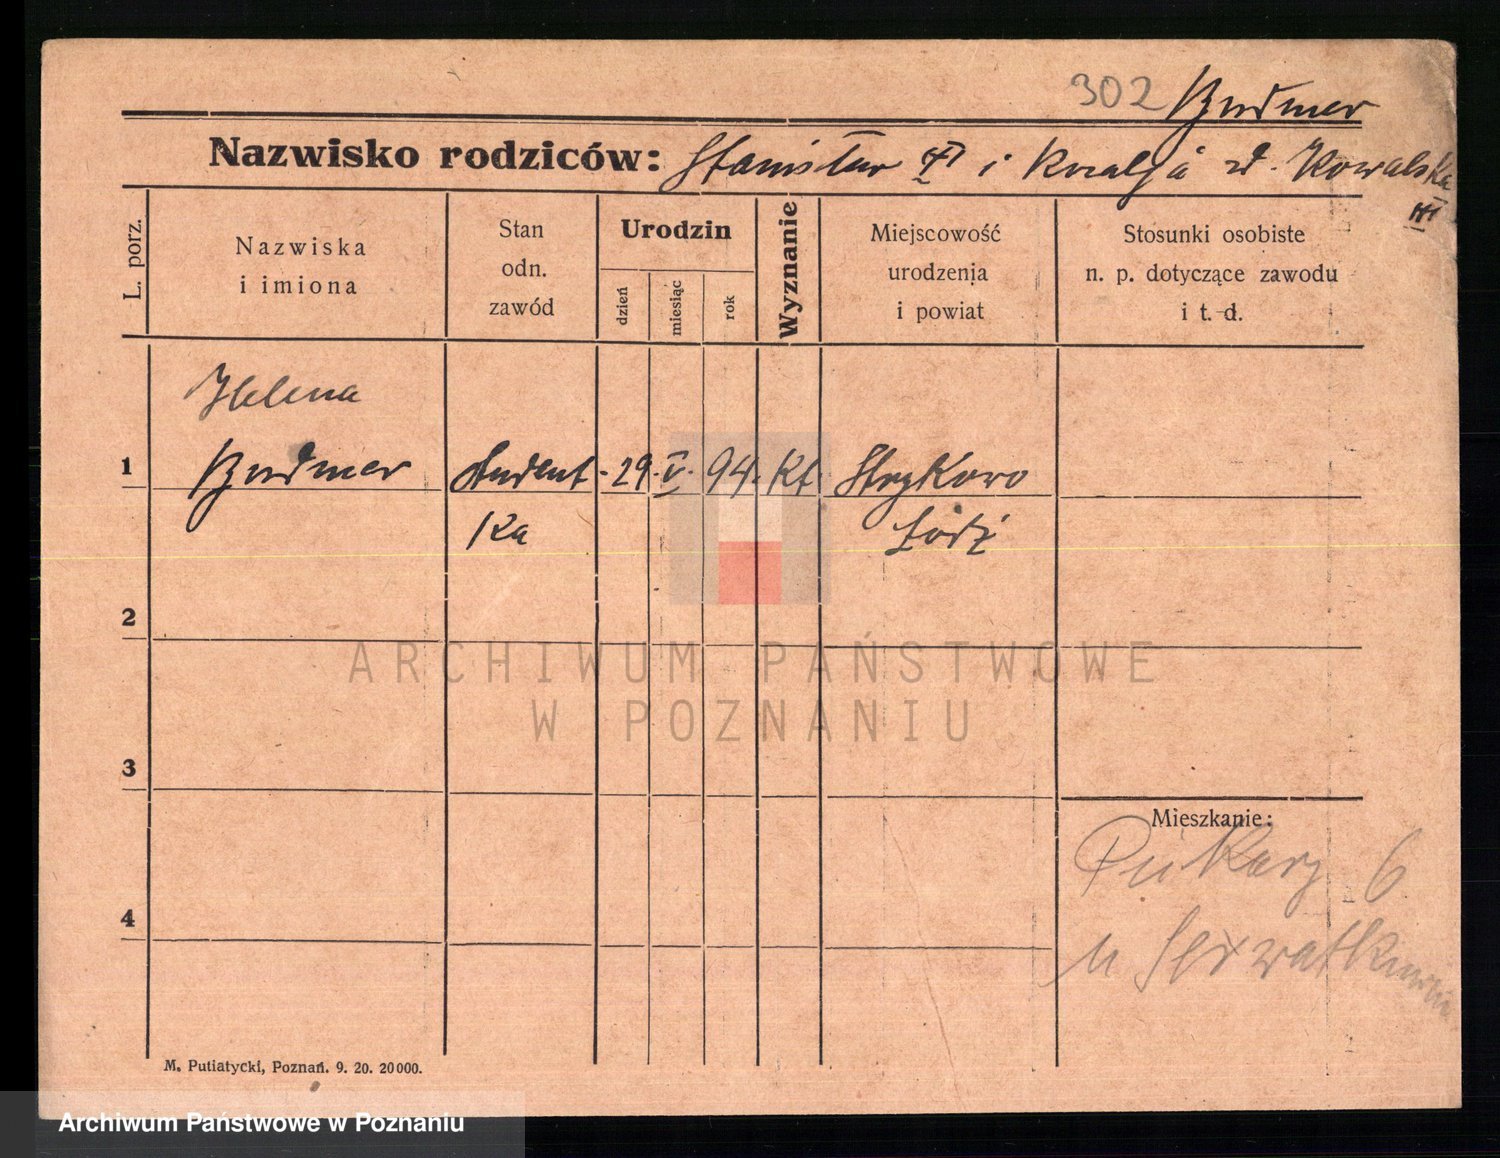 302 Budmer
Nazwisko rodziców: Stanisław VI i Rozalja z d. Kowalska
III
L. porz.
Nazwiska
i imiona
Stan
odn.
zawód
Urodzin
dzień
miesiąc
rok
Wyznanie
Miejscowość
urodzenia
i powiat
Stosunki osobiste
n. p. dotyczące zawodu
i t. d.
Helena
1 Budmer student- 29. V. 94. Kt Strykowo
ka Łódź
2
3
4
Mieszkanie:
Piekary 6
u
M. Putiatycki, Poznań. 9. 20. 20000.
ARCHIWUM PAŃSTWOWE
W POZNANIU
Archiwum Państwowe w Poznaniu